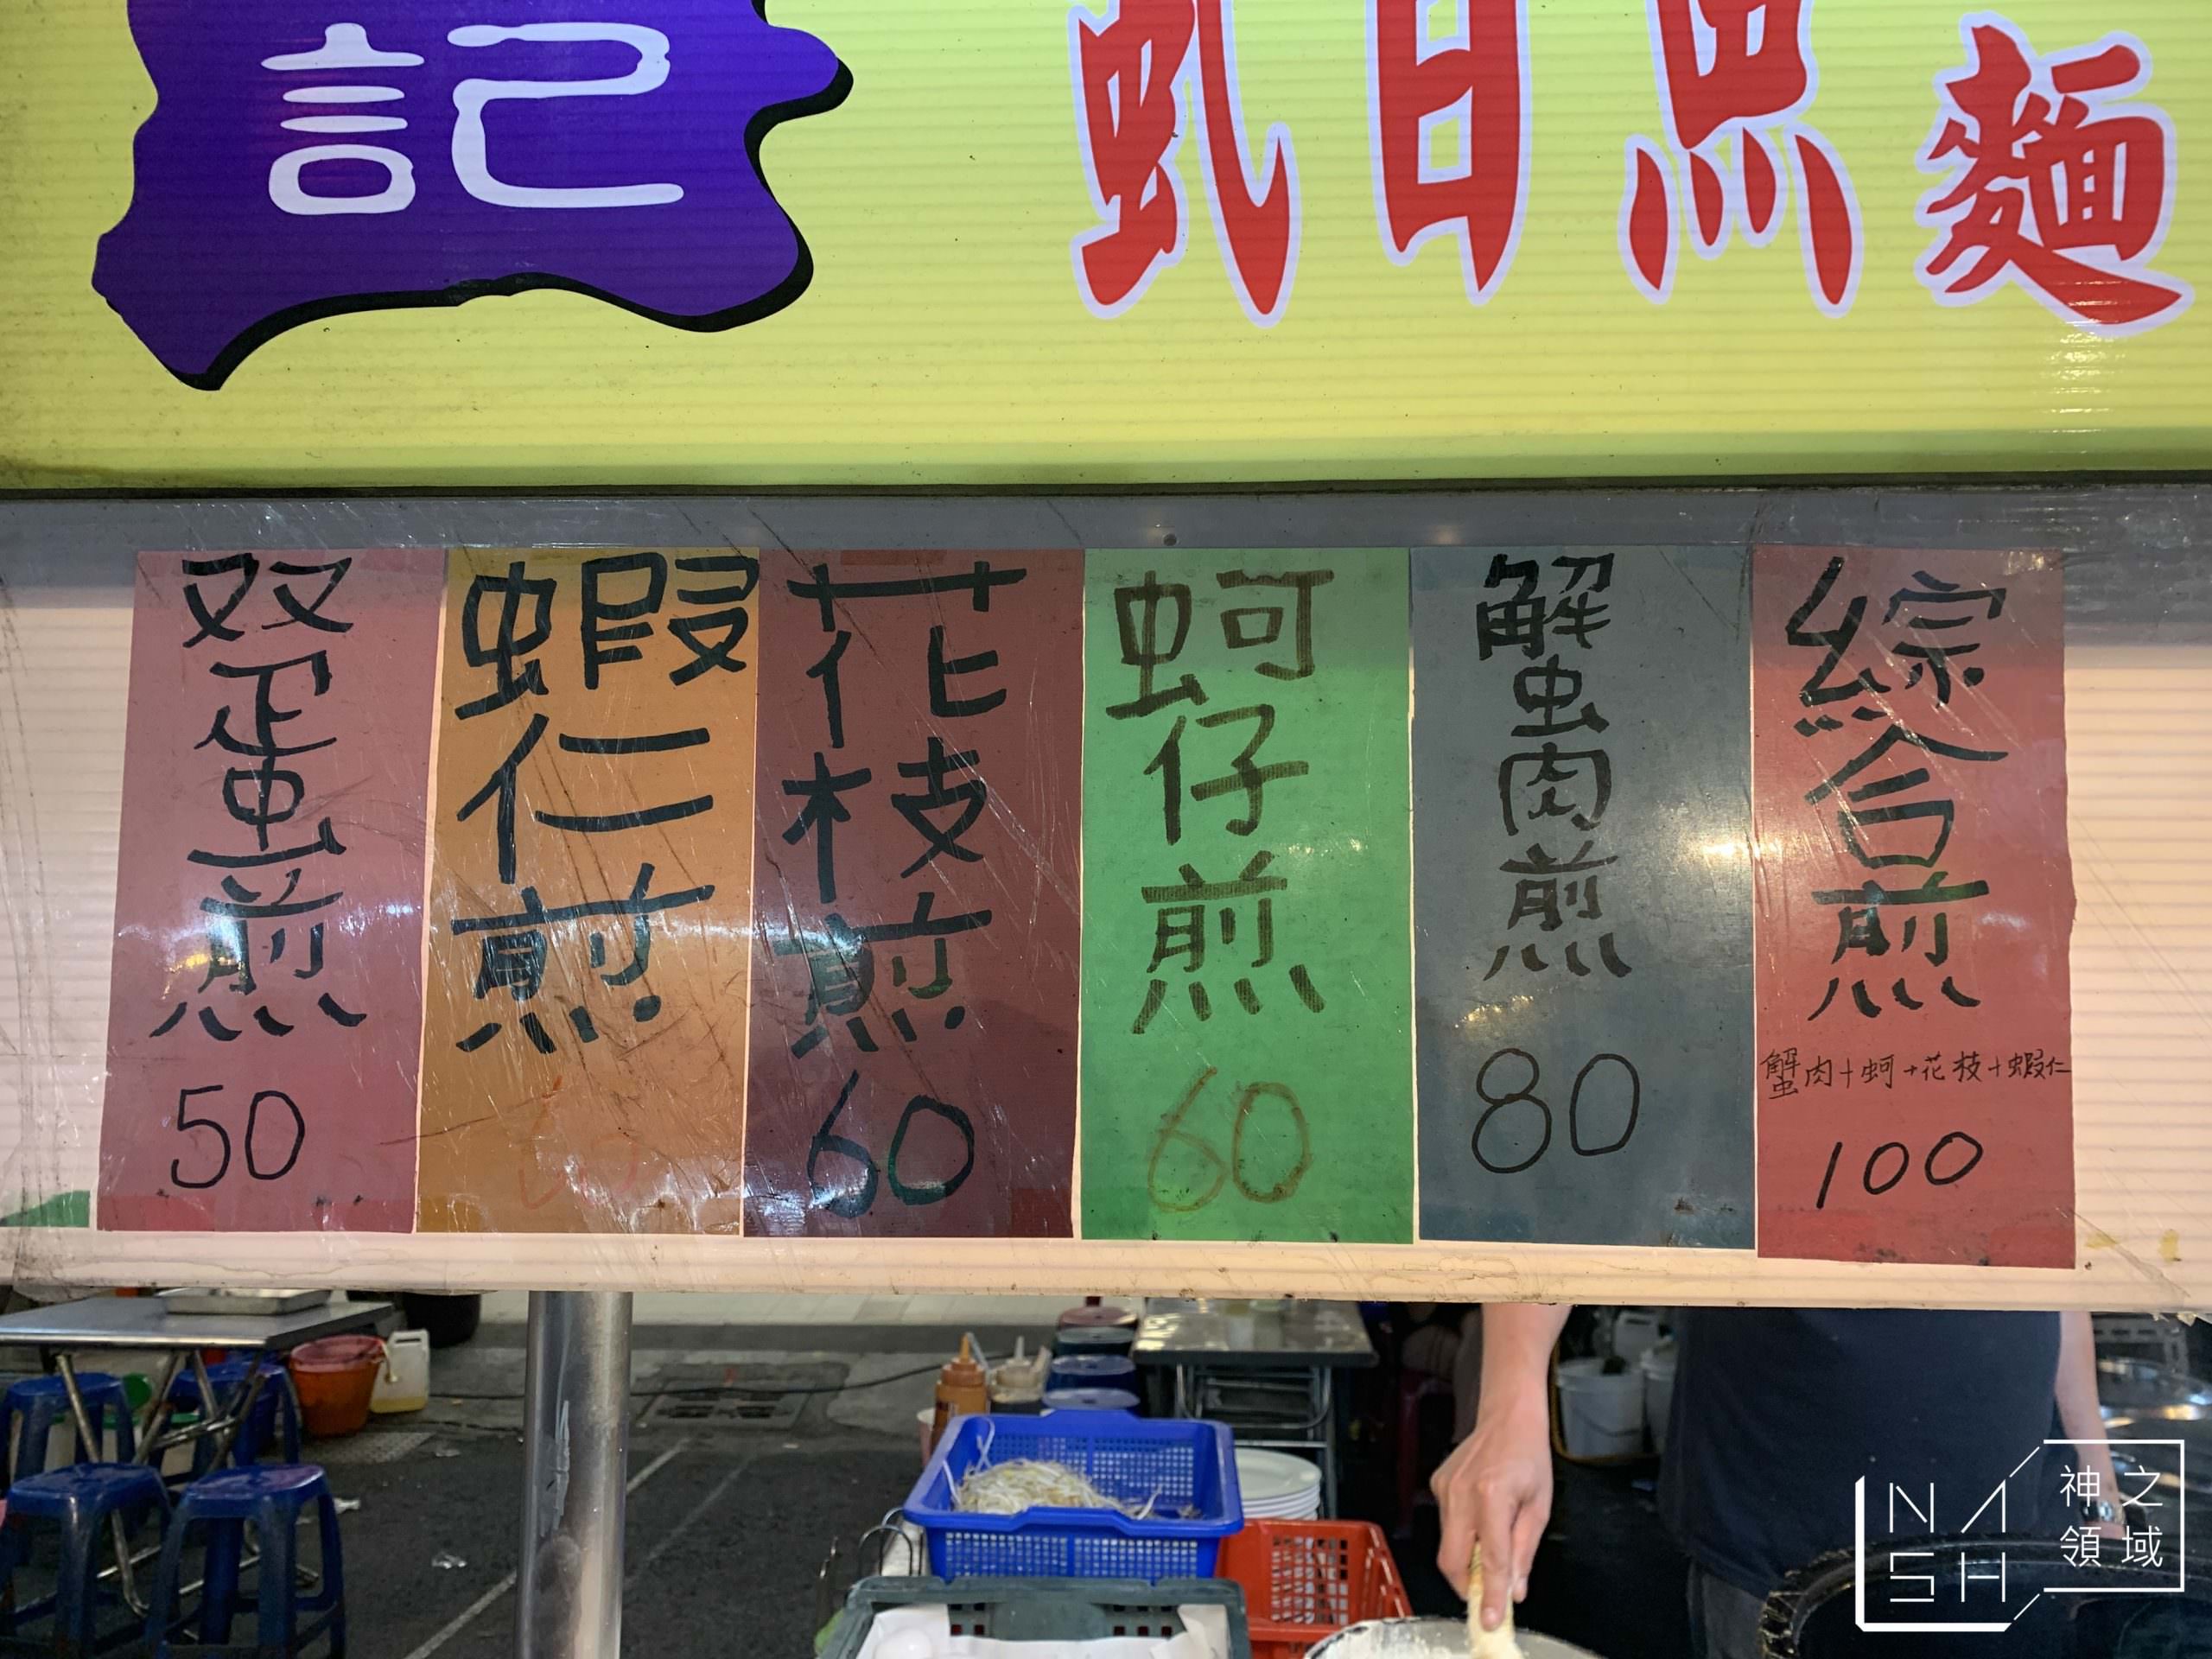 記
虱目魚麵
双蛋煎
50
蝦仁煎
花枝煎
60
蚵仔煎
60
蟹肉煎
80
綜合煎
蟹肉+蚵+花枝+蝦仁
100
NASH
神之
領域